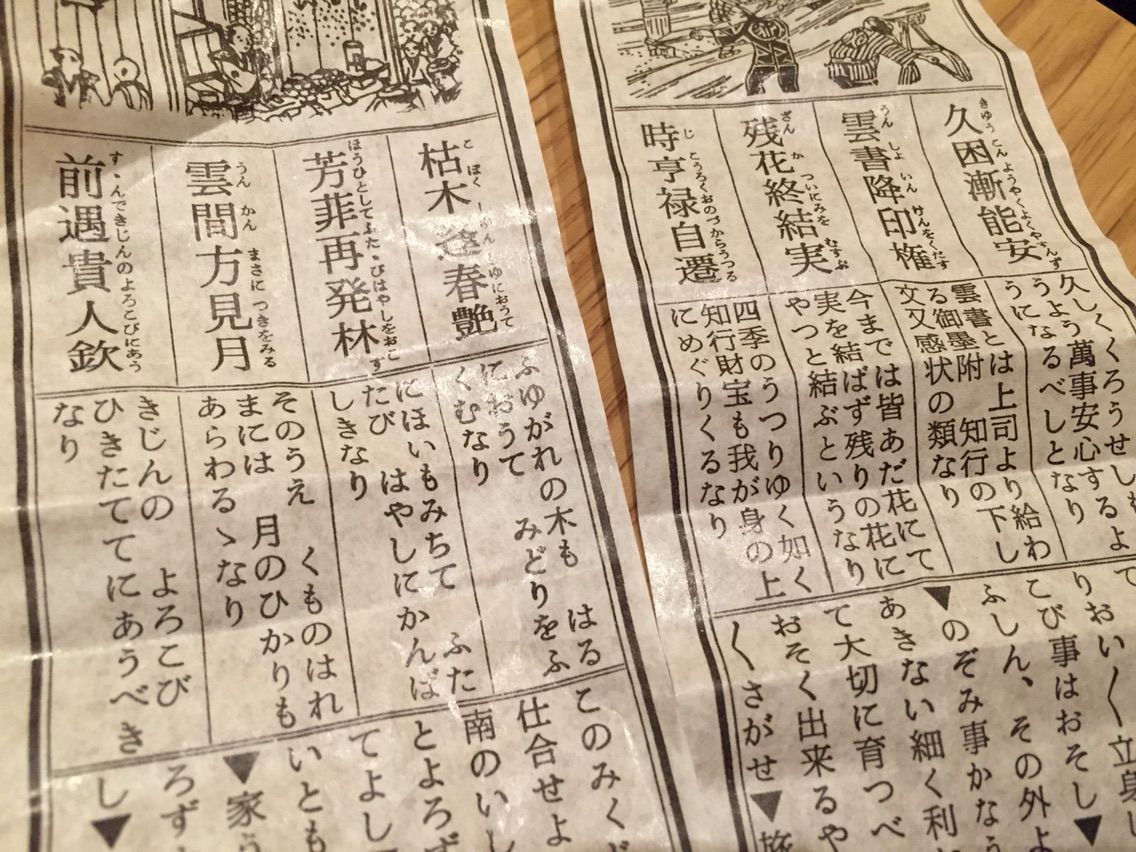 久困漸能安
きゅうこんようやくよくやすんず
雲書降印権
うんしょいんけんをくだす
残花終結実
ざんかついにみをむすぶ
時亨禄自遷
じとうろくおのづからうつる
久しくくろうせしも
よう萬事安心するよ
うになるべしとなり
雲書とは上司より給わ
る御墨附 知行の下し
文又感状の類なり
今までは皆あだ花にて
実を結ばず残りの花に
やつと結ぶというなり
四季のうつりゆく如く
知行財宝も我が身の上
にめぐりくるなり
て
りおい〱立身し
こび事はおそし▼
ふしん、その外よ
▼のぞみ事かなう
あきない細く利
て大切に育つべ
おそく出来るや
〱さがせ▼旅
枯木逢春艶
こぼく
ゆにおうて
芳菲再発林
ほうひとしてふたゝびはやしをおこす
雲間方見月
うんかんまさにつきをみる
前遇貴人欽
すゝんできじんのよろこびにあう
ふゆがれの木も はる
におうて みどりをふ
くむなり
にほいもみちて ふた
たび はやしにかんば
しきなり
そのうえ くものはれ
まには 月のひかりも
あらわるゝなり
きじんの よろこび
ひきたててにあうべき
なり
このみく
仕合せよ
南のいし
とよろず
てよし
いとも
▼家う
ろず
し▼